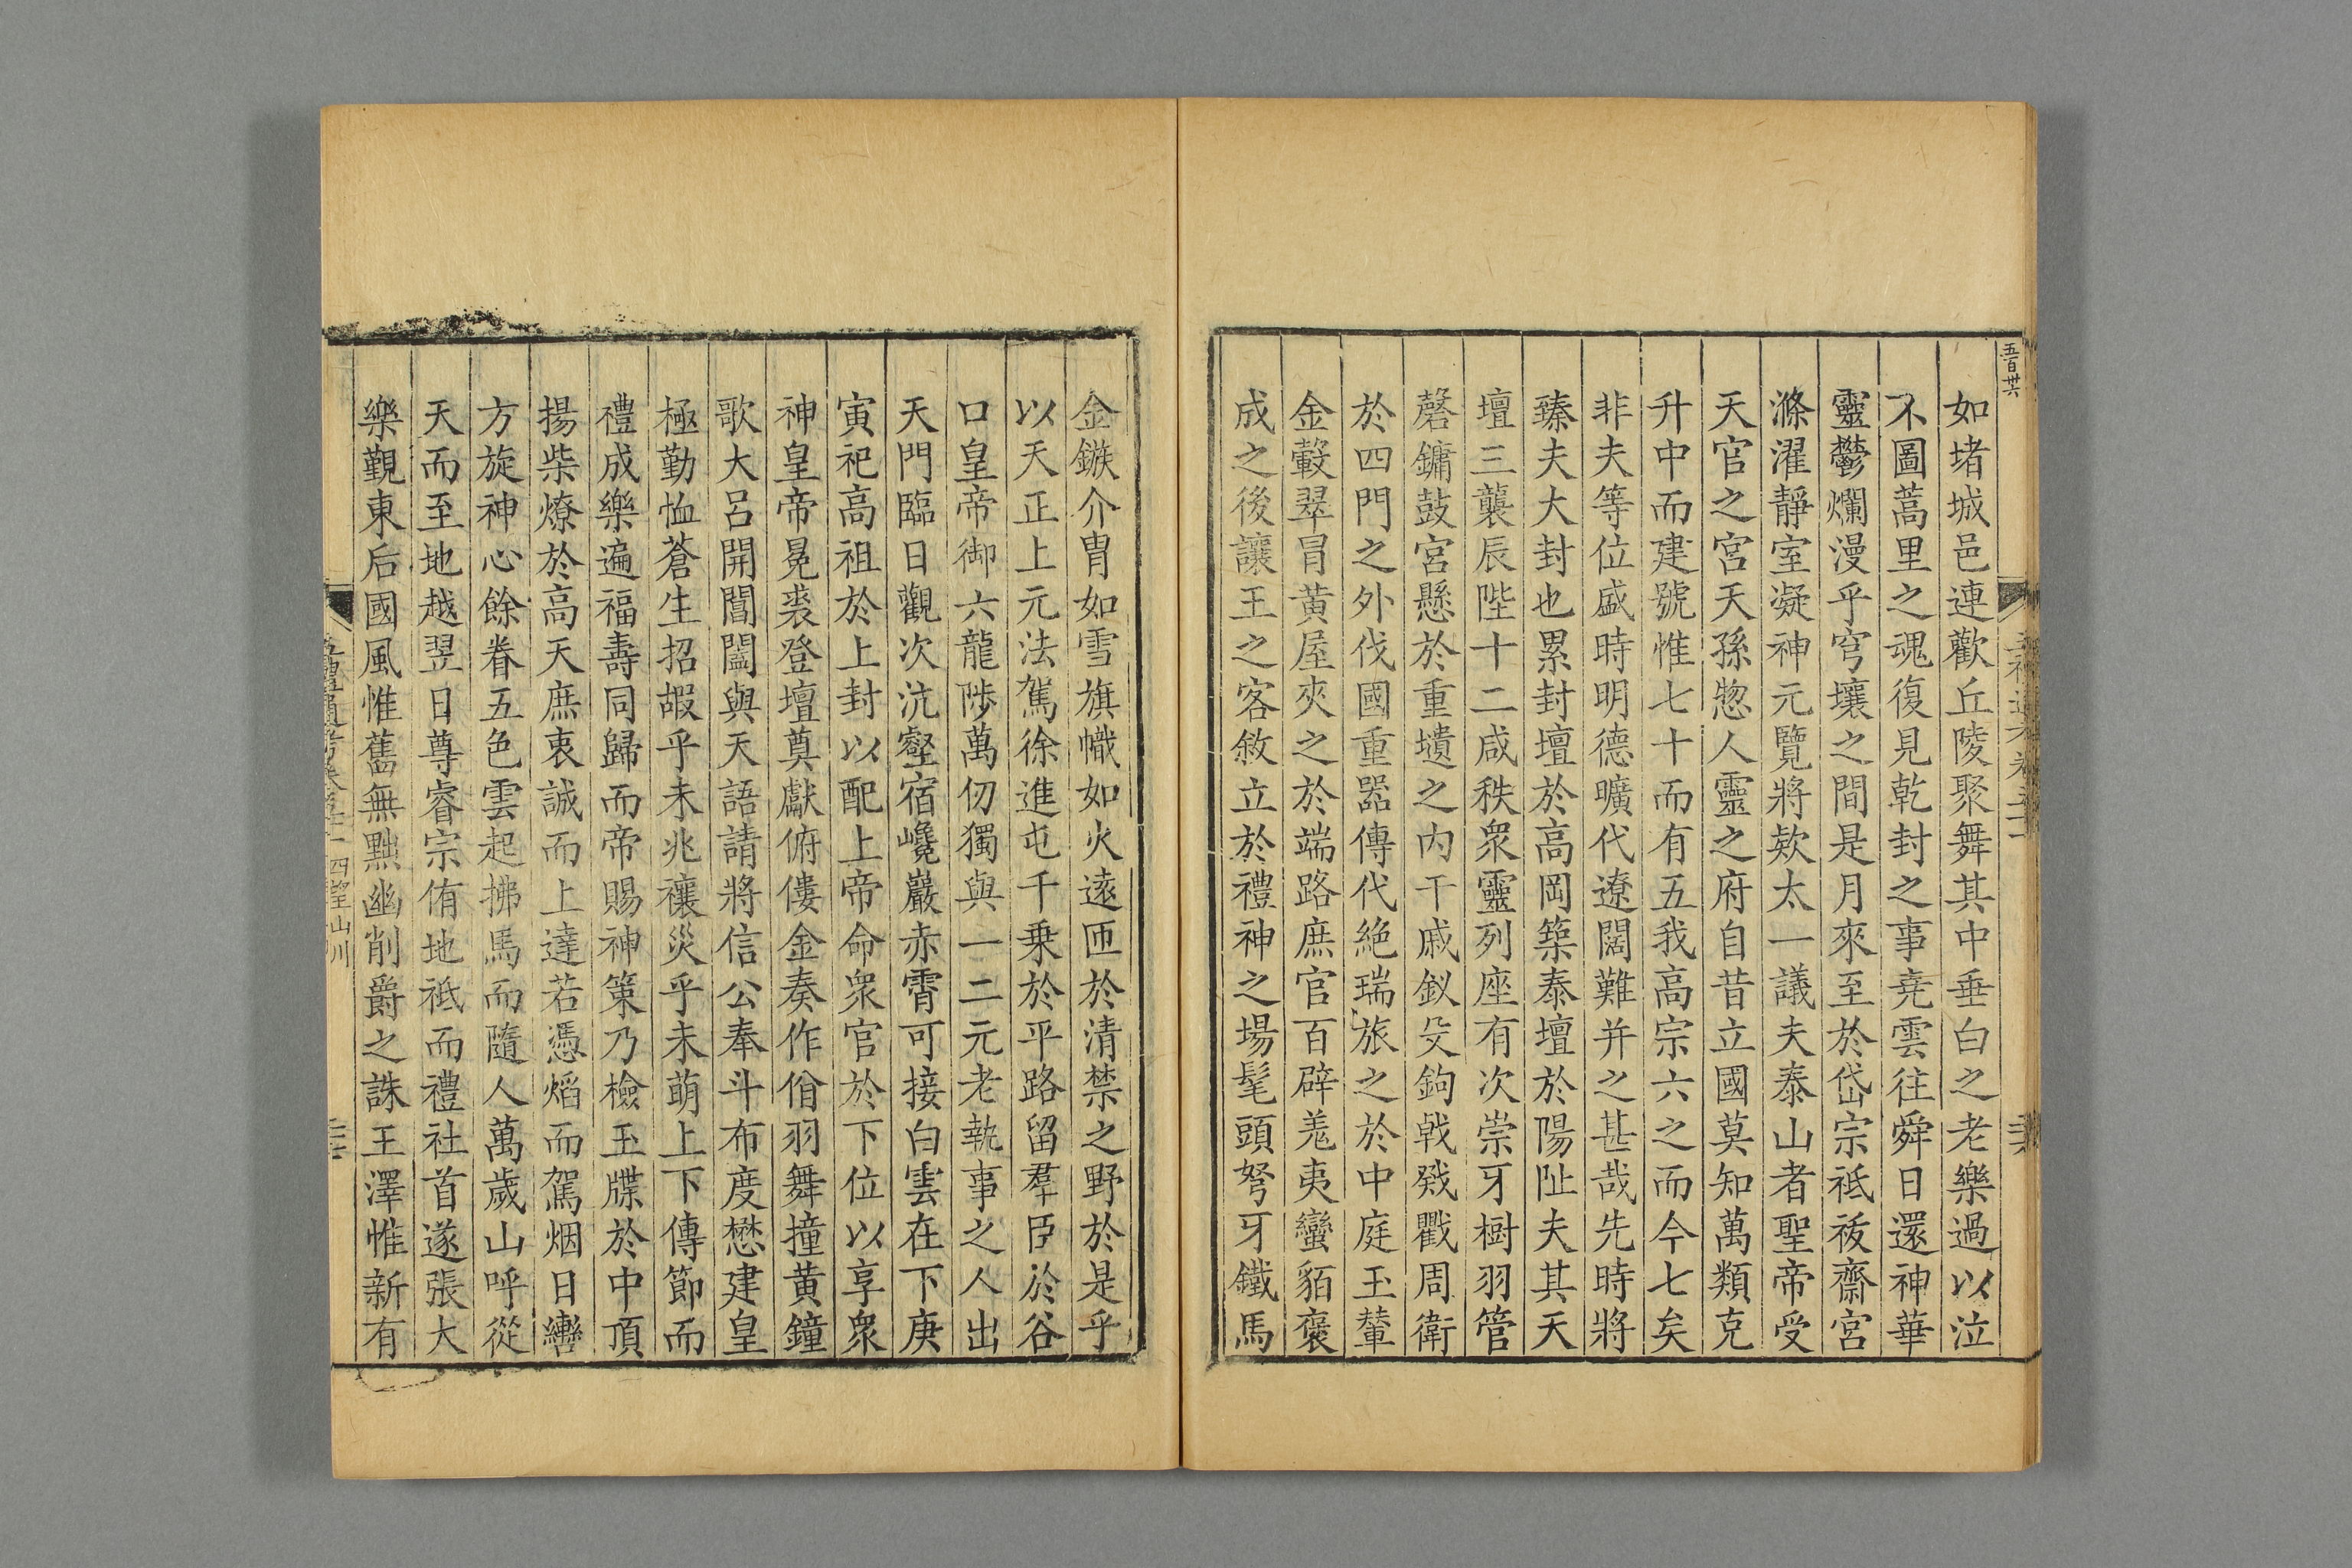 五百廿六
如堵城邑連歡丘陵聚舞其中垂白之老樂過以泣
不圖蒿里之魂復見乾封之事堯雲往舜日還神華
靈鬱爛漫乎穹壤之間是月來至於岱宗祗祓齋宮
滌濯靜室凝神元覽將款太一議夫泰山者聖帝受
天官之宮天孫惣人靈之府自昔立國莫知萬類克
升中而建號惟七十而有五我高宗六之而今七矣
非夫等位盛時明德曠代遼闊難并之甚哉先時將
臻夫大封也累封壇於高岡築泰壇於陽阯夫其天
壇三襲辰陛十二咸秩衆靈列座有次崇牙樹羽管
磬鏞鼓宮懸於重壝之內干戚釵殳鉤戟戣戵周衛
於四門之外伐國重器傳代絕瑞旅之於中庭玉輦
金轂翠冒黃屋夾之於端路庶官百辟羌夷蠻貊褒
成之後讓王之客敘立於禮神之場髦頭弩牙鐵馬
金鏃介冑如雪旗幟如火遠匝於清禁之野於是乎
以天正上元法駕徐進屯千乘於平路留羣臣於谷
口皇帝御六龍陟萬仞獨與一二元老執事之人出
天門臨日觀次沆壑宿巉巖赤霄可接白雲在下庚
寅祀高祖於上封以配上帝命衆官於下位以享衆
神皇帝冕裘登壇奠獻俯僂金奏作佾羽舞撞黃鐘
歌大呂開閶闔與天語請將信公奉斗布度懋建皇
極勤恤蒼生招嘏乎未兆禳災乎未萌上下傳節而
禮成樂遍福壽同歸而帝賜神策乃檢玉牒於中頂
揚柴燎於高天庶衷誠而上達若憑焰而駕烟日轡
方旋神心餘眷五色雲起拂馬而隨人萬歲山呼從
天而至地越翌日尊睿宗侑地祗而禮社首遂張大
樂觀東后國風惟舊無黜幽削爵之誅王澤惟新有
四望山川